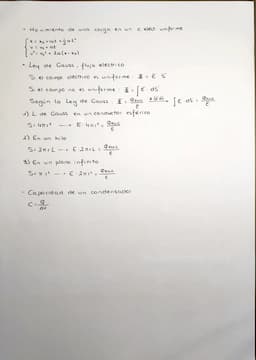 · Movimiento de una carga en un c. eléct. uniforme
x = x₀ + v₀t + ½at²
v = v₀ + at
v² = v₀² + 2a(x - x₀)
· Ley de Gauss, flujo eléctrico
Si el campo eléctrico es uniforme: Φ = E · S
Si el campo no es uniforme: Φ = ∫ E · dS
Según la Ley de Gauss: Φ = Qenc/ε ∫ E · dS = Qenc/ε
1) L. de Gauss en un conductor esférico
S = 4πr² → E · 4πr² = Qenc/ε
2) En un hilo
S = 2πrL → E · 2πrL = Qenc/ε
3) En un plano infinito
S = πr² → E · 2πr² = Qenc/ε
· Capacidad de un condensador
C = Q/ΔV